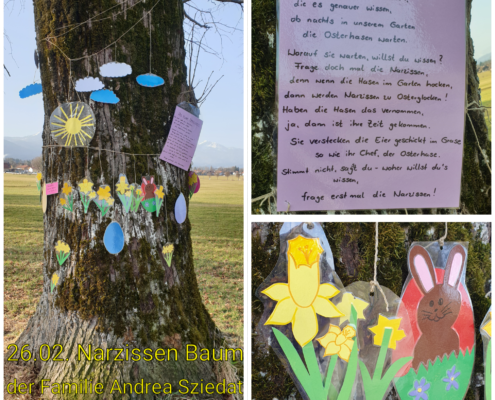 die es genauer wissen,
ob nachts in unserem Garten
die Osterhasen warten.
Worauf sie warten, willst du wissen?
Frage doch mal die Narzissen,
denn wenn die Hasen im Garten hocken,
dann werden Narzissen zu Osterglocken!
Haben die Hasen das vernommen,
ja, dann ist ihre Zeit gekommen.
Sie verstecken die Eier geschickt im Grase
so wie ihr Chef, der Osterhase.
Stimmt nicht, sagst du - woher willst du's
wissen,
frage erst mal die Narzissen!
26.02. Narzissen Baum
der Familie Andrea Sziedat